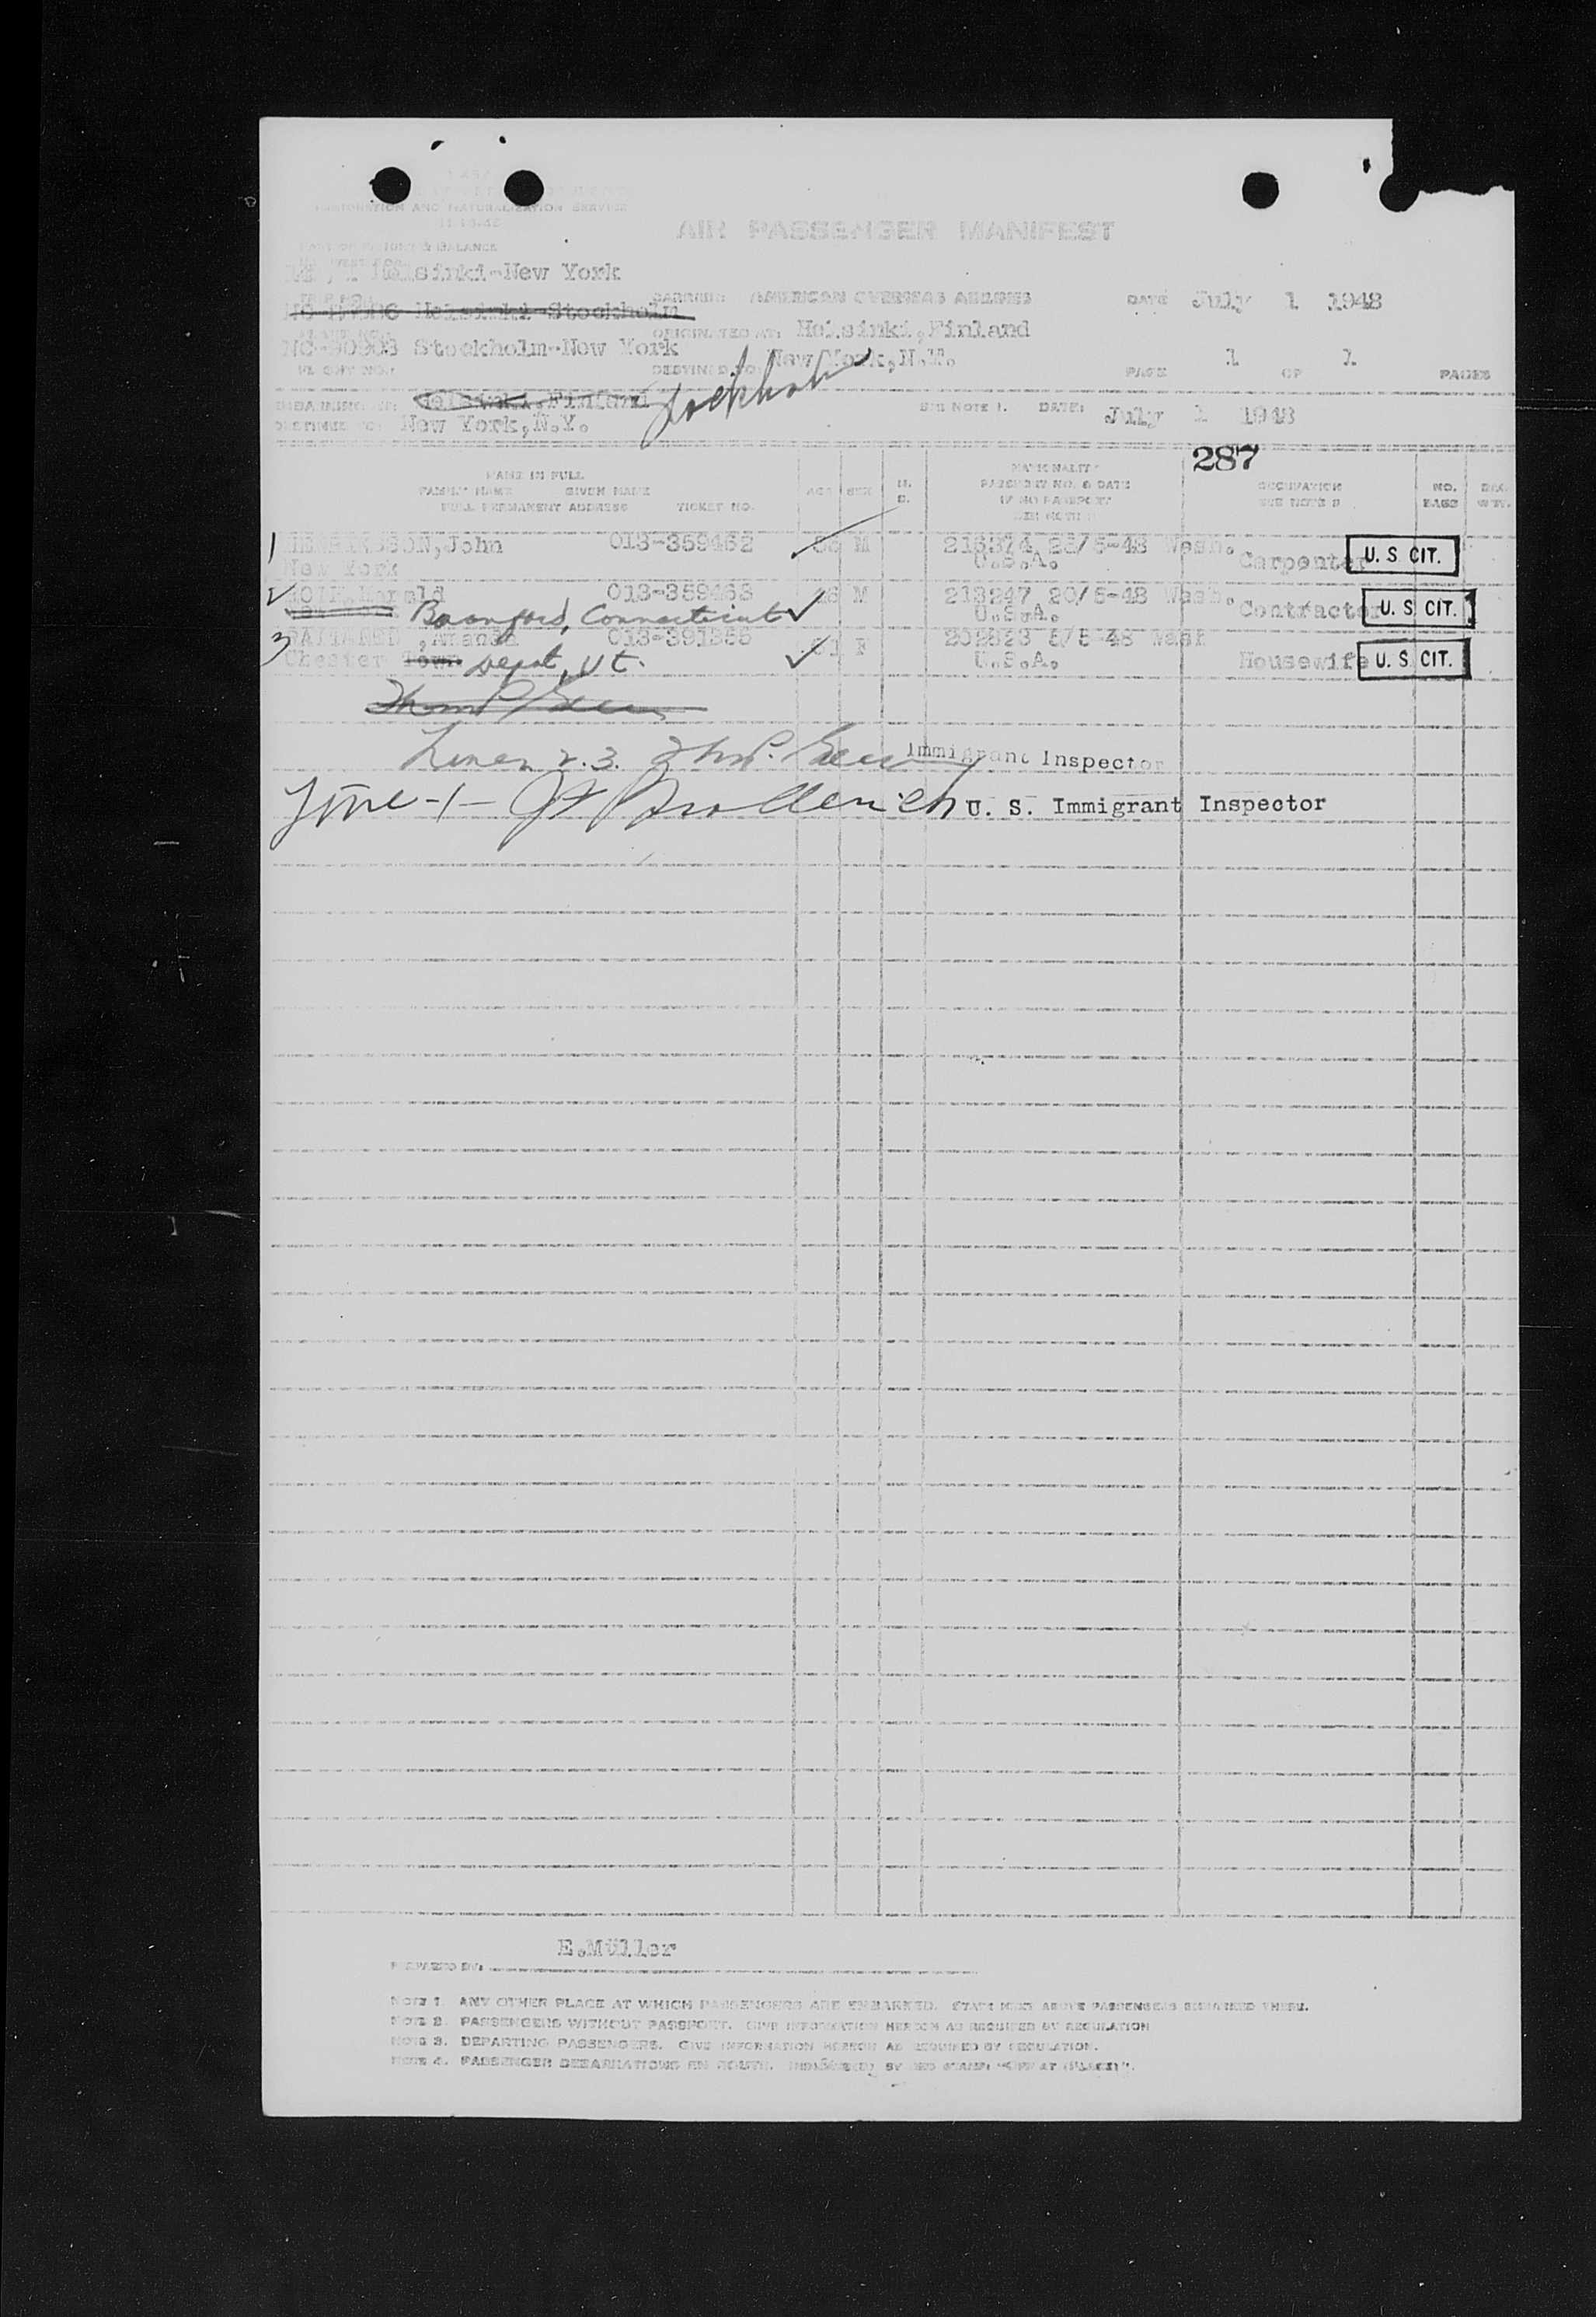 IMMIGRATION AND NATURALIZATION SERVICE
AIR PASSENGER MANIFEST
& BALANCE
Helsinki-New York
Helsinki-Stockholm CARRIER: AMERICAN OVERSEAS AIRLINES DATE July 1 1948
ORIGINATED AT: Helsinki, Finland
NC-90903 Stockholm-New York
DESTINED TO: New York, N.Y. PAGE 1 OF 1 PAGES
EMBARKING AT: Helsinki, Finland Stockholm SEE NOTE 1. DATE: July 1 1948
DESTINED TO: New York, N.Y.
287
NAME IN FULL
FAMILY NAME GIVEN NAME
FULL PERMANENT ADDRESS TICKET NO.
AGE SEX
NATIONALITY
PASSPORT NO. & DATE
IF NO PASSPORT
SEE NOTE
OCCUPATION
SEE NOTE 3
NO. BAGS
1 John 013-359462 M 216374 25/5-48 Wash.
New York U.S.A. Carpenter U. S. CIT.
2 Harold 013-359463 M 213247 20/5-48 Wash.
Branford, Connecticut U.S.A. Contractor U. S. CIT.
3 , Amanda 013-391355 F 202823 5/5-48 Wash
Chester Town Depot, Vt. U.S.A. Housewife U. S. CIT.
Lines 2.3. Immigrant Inspector
Line -1- U. S. Immigrant Inspector
E.Müller
PREPARED BY:
NOTE 1. ANY OTHER PLACE AT WHICH PASSENGERS ARE EMBARKED. STATE NEXT ABOVE PASSENGERS EMBARKED THERE.
NOTE 2. PASSENGERS WITHOUT PASSPORT. GIVE INFORMATION HEREON AS REQUIRED BY REGULATION
NOTE 3. DEPARTING PASSENGERS. GIVE INFORMATION HEREON AS REQUIRED BY REGULATION.
NOTE 4. PASSENGER DEBARKATIONS EN ROUTE. INDICATED BY RED STAMP: "OFF AT (PLACE)".